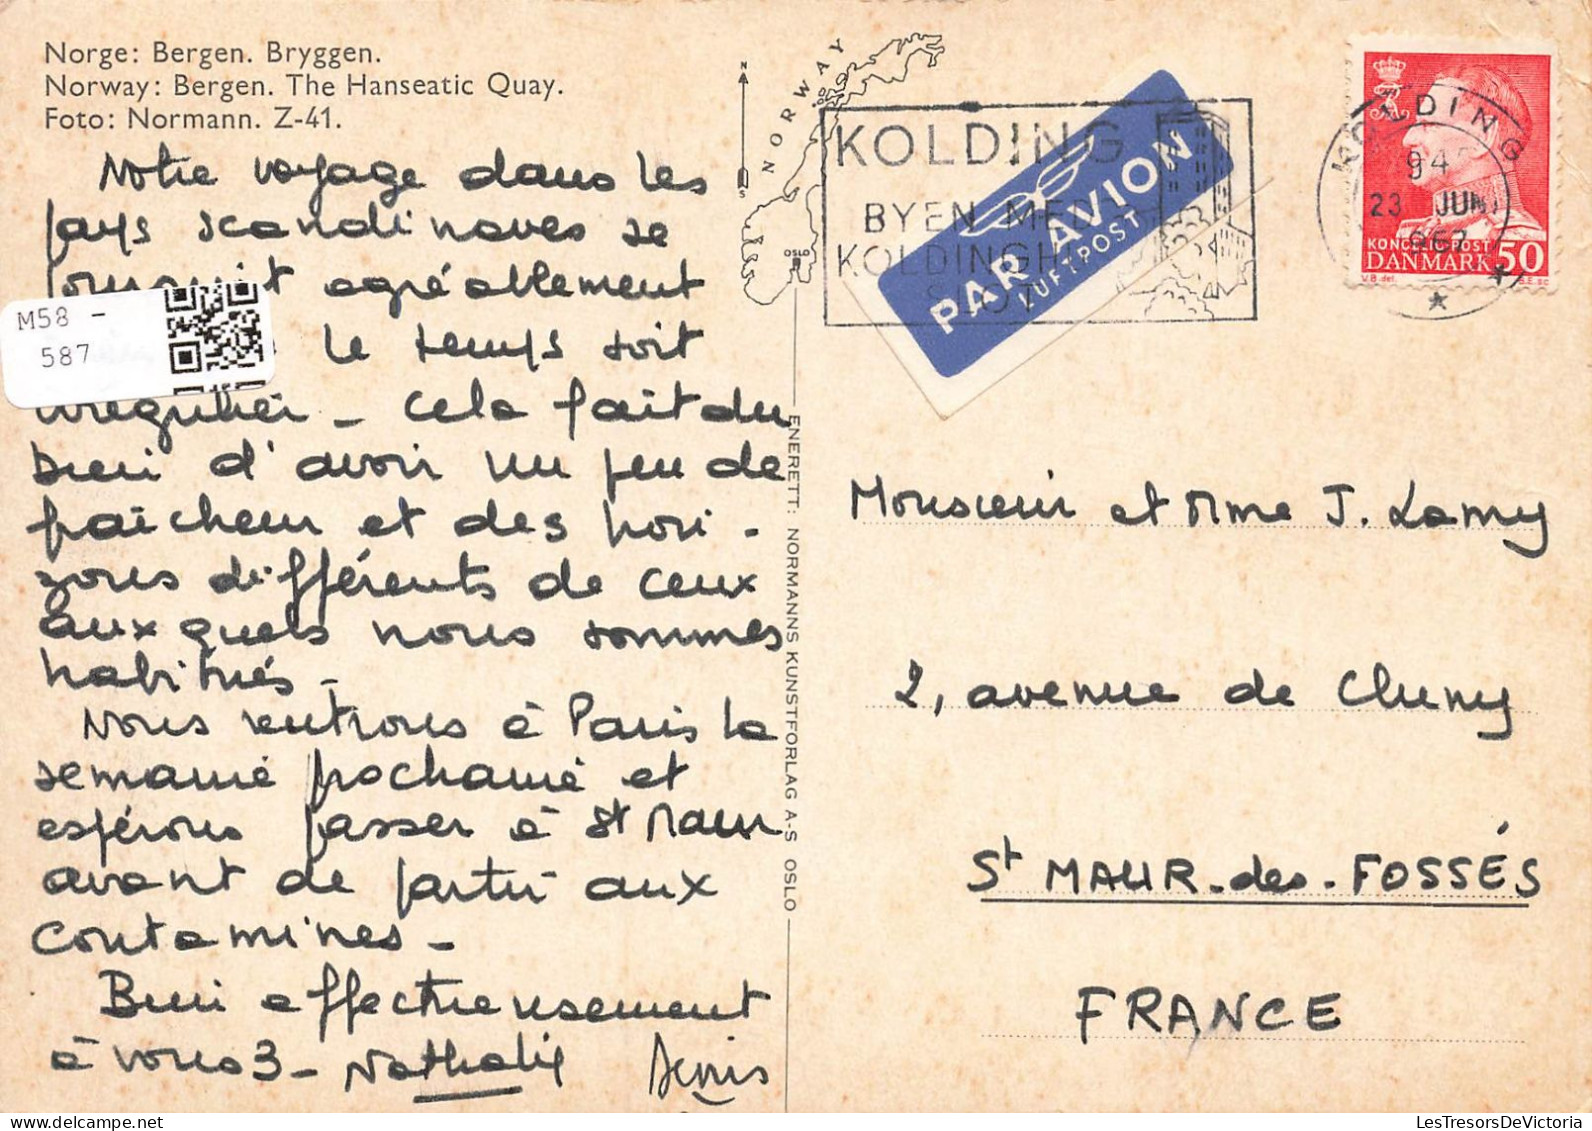 Norge: Bergen. Bryggen.
Norway: Bergen. The Hanseatic Quay.
Foto: Normann. Z-41.
Notre voyage dans les
pays scandinaves se
poursuit agréablement
le temps soit
irrégulier - cela fait du
bien d'avoir un peu de
fraîcheur et des hori-
zons différents de ceux
auxquels nous sommes
habitués -
Nous rentrons à Paris la
semaine prochaine et
espérons passer à St Maur
avant de partir aux
Contamines -
Bien affectueusement
à vous 3 - Nathalie Denis
M58 -
587
NORWAY
N
S
OSLO
ENERETT: NORMANNS KUNSTFORLAG A-S OSLO
KOLDING
BYEN MED
KOLDINGHUS
SLOT
PAR AVION
LUFTPOST
KOLDING
94
23 JUNI
KONGELIG POST
DANMARK 50
V.B. del.
B.E. sc
Monsieur et Mme J. Lamy
2, avenue de Cluny
St MAUR-des-FOSSÉS
FRANCE
LesTresorsDeVictoria